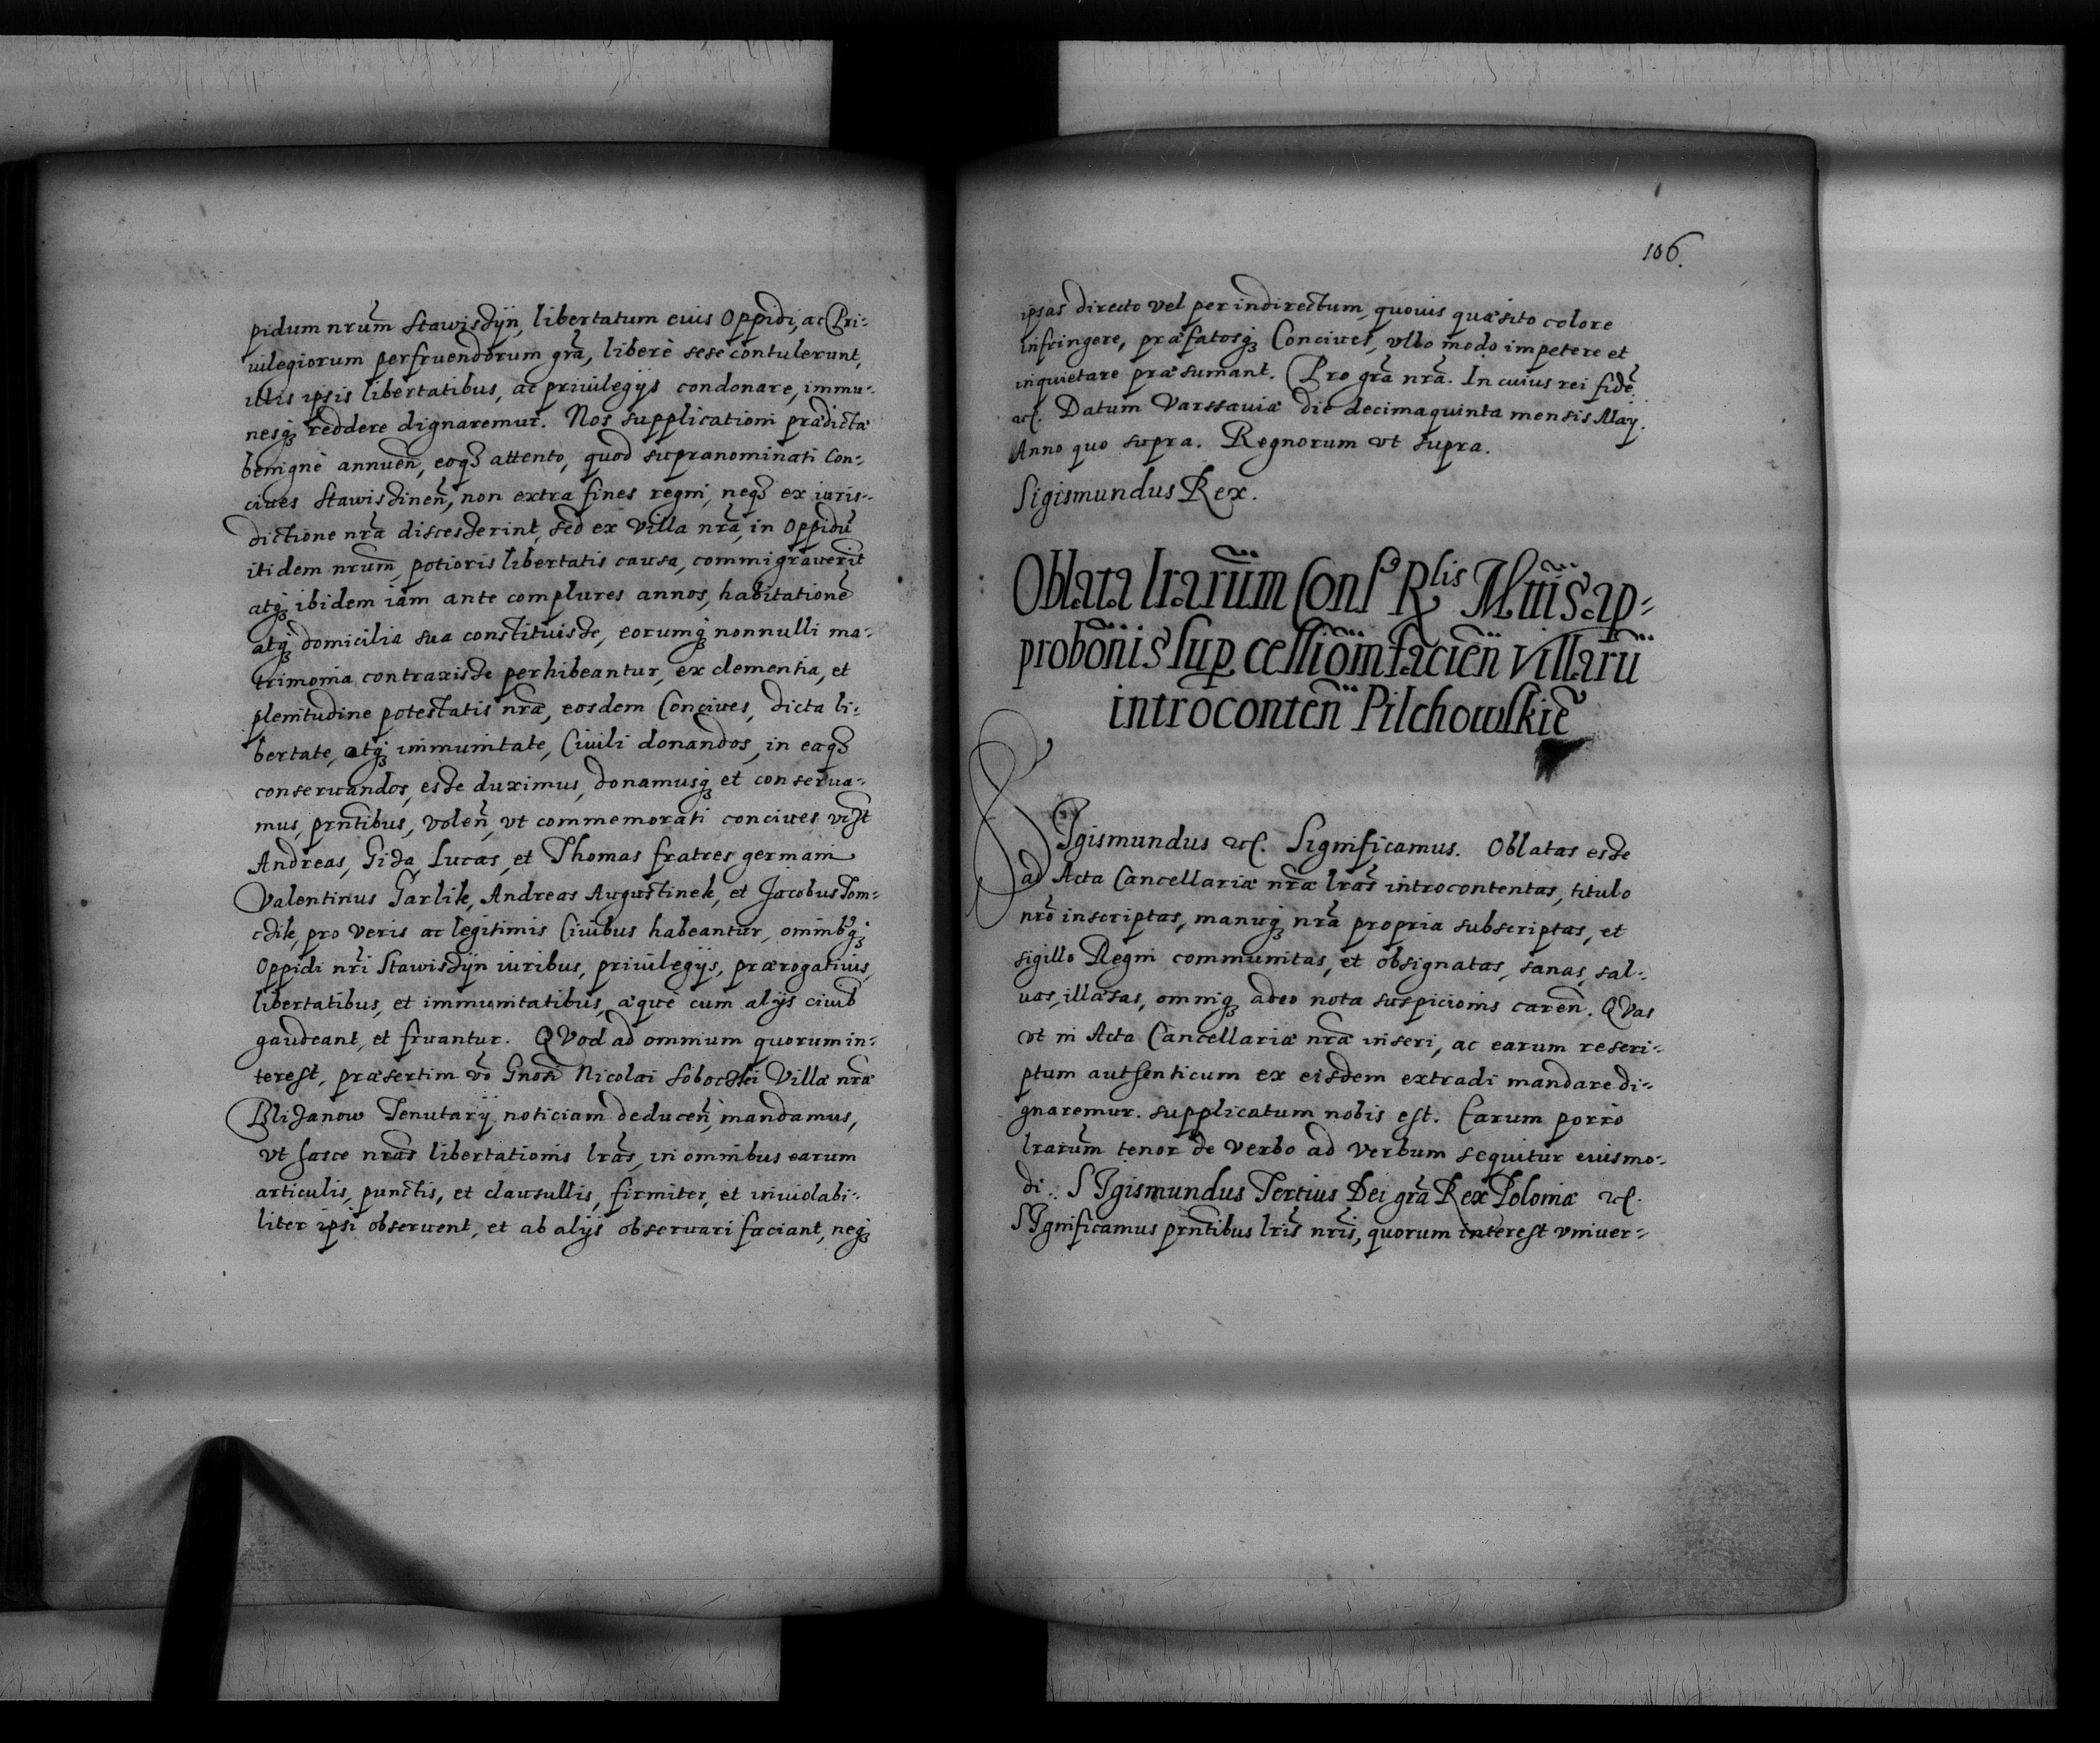 pidum nrum Stawiszijn, libertatum eius Oppidi, ac Pri-
uilegiorum perfruendorum gra, liberè sese contulerunt,
illis ipsis libertatibus, ac priuilegijs condonare, immu-
nesq3 reddere dignaremur. Nos supplicationi prædictæ
benignè annuen, eoq3 attento, quod supranominati Con-
ciues Stawiszinen, non extra fines regni, neq3 ex iuris-
dictione nra discesserint, sed ex Villa nra, in Oppidu
itidem nrum, potioris libertatis causa, commigrauerit
atq3 ibidem iam ante complures annos, habitatione
atq3 domicilia sua constituisse, eorumq3 nonnulli ma-
trimonia contraxisse perhibeantur, ex clementia, et
plenitudine potestatis nræ, eosdem Conciues, dicta li-
bertate, atq3 immunitate, Ciuili donandos, in eaq3
conseruandos, esse duximus, donamusq3 et conserua-
mus, prntibus, volen, vt commemorati conciues vist
Andreas, Giza, Lucas, et Thomas fratres germani
Valentinus Garlik, Andreas Augustinek, et Jacobus Tom-
czik, pro veris ac legitimis Ciuibus habeantur, omnibq3
Oppidi nri Stawiszijn iuribus, priuilegijs, prærogatiuis,
libertatibus, et immunitatibus, æquè cum alijs ciuib
gaudeant, et fruantur. QVod ad omnium quorum in-
terest, præsertim vo Gnosi Nicolai Soboczki Villæ nræ
Blizanow Tenutarij noticiam deducen, mandamus,
vt hasce nras libertationis lras, in omnibus earum
articulis, punctis, et clausullis, firmiter, et inuiolabi-
liter ipsi obseruent, et ab alijs obseruari faciant, neq3
106.
ipsas directo vel per indirectum, quouis quæsito colore
infringere, præfatosq3 Conciues, vllo modo impetere et
inquietare præsumant. Pro gra nra. In cuius rei fide
etc. Datum Varssauiæ die decimaquinta mensis Maij.
Anno quo supra. Regnorum vt supra.
Sigismundus Rex.
Oblata lrarum Cons9 Rlis Mttis ap-
probonis sup cessiom facien villaru
introconten Pilchowskie
SIgismundus etc. Significamus. Oblatas esse
ad Acta Cancellariæ nræ lras introcontentas, titulo
nro inscriptas, manuq3 nra propria subscriptas, et
sigillo Regni communitas, et obsignatas, sanas, sal-
uas, illæsas, omniq3 adeo nota suspicionis caren. QVas
vt in Acta Cancellariæ nræ inseri, ac earum rescri-
ptum authenticum ex eisdem extradi mandare di-
gnaremur. supplicatum nobis est. Earum porrò
lrarum tenor de verbo ad verbum sequitur eiusmo-
di. SIgismundus Tertius Dei gra Rex Poloniæ etc.
SIgnificamus prntibus lris nris, quorum interest vniuer-